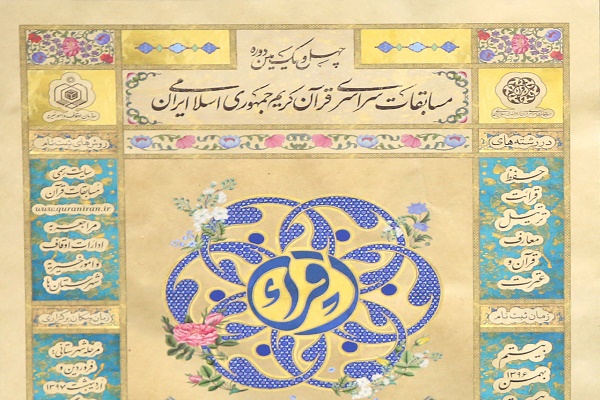 چهل و یکمین دوره
مسابقات سراسری قرآن کریم جمهوری اسلامی ایران
در رشته‌های:
حفظ
قرائت
ترتیل
معارف
قرآن و
عترت
زمان ثبت نام
بیستم
بهمن ۱۳۹۶
اقراء
روش‌های ثبت نام
سایت رسمی
مسابقات قرآن
www.quraniran.ir
مراجعه به
ادارات اوقاف
و امور خیریه
شهرستان‌ها
مرحله شهرستانی:
فروردین و
اردیبهشت ۱۳۹۷